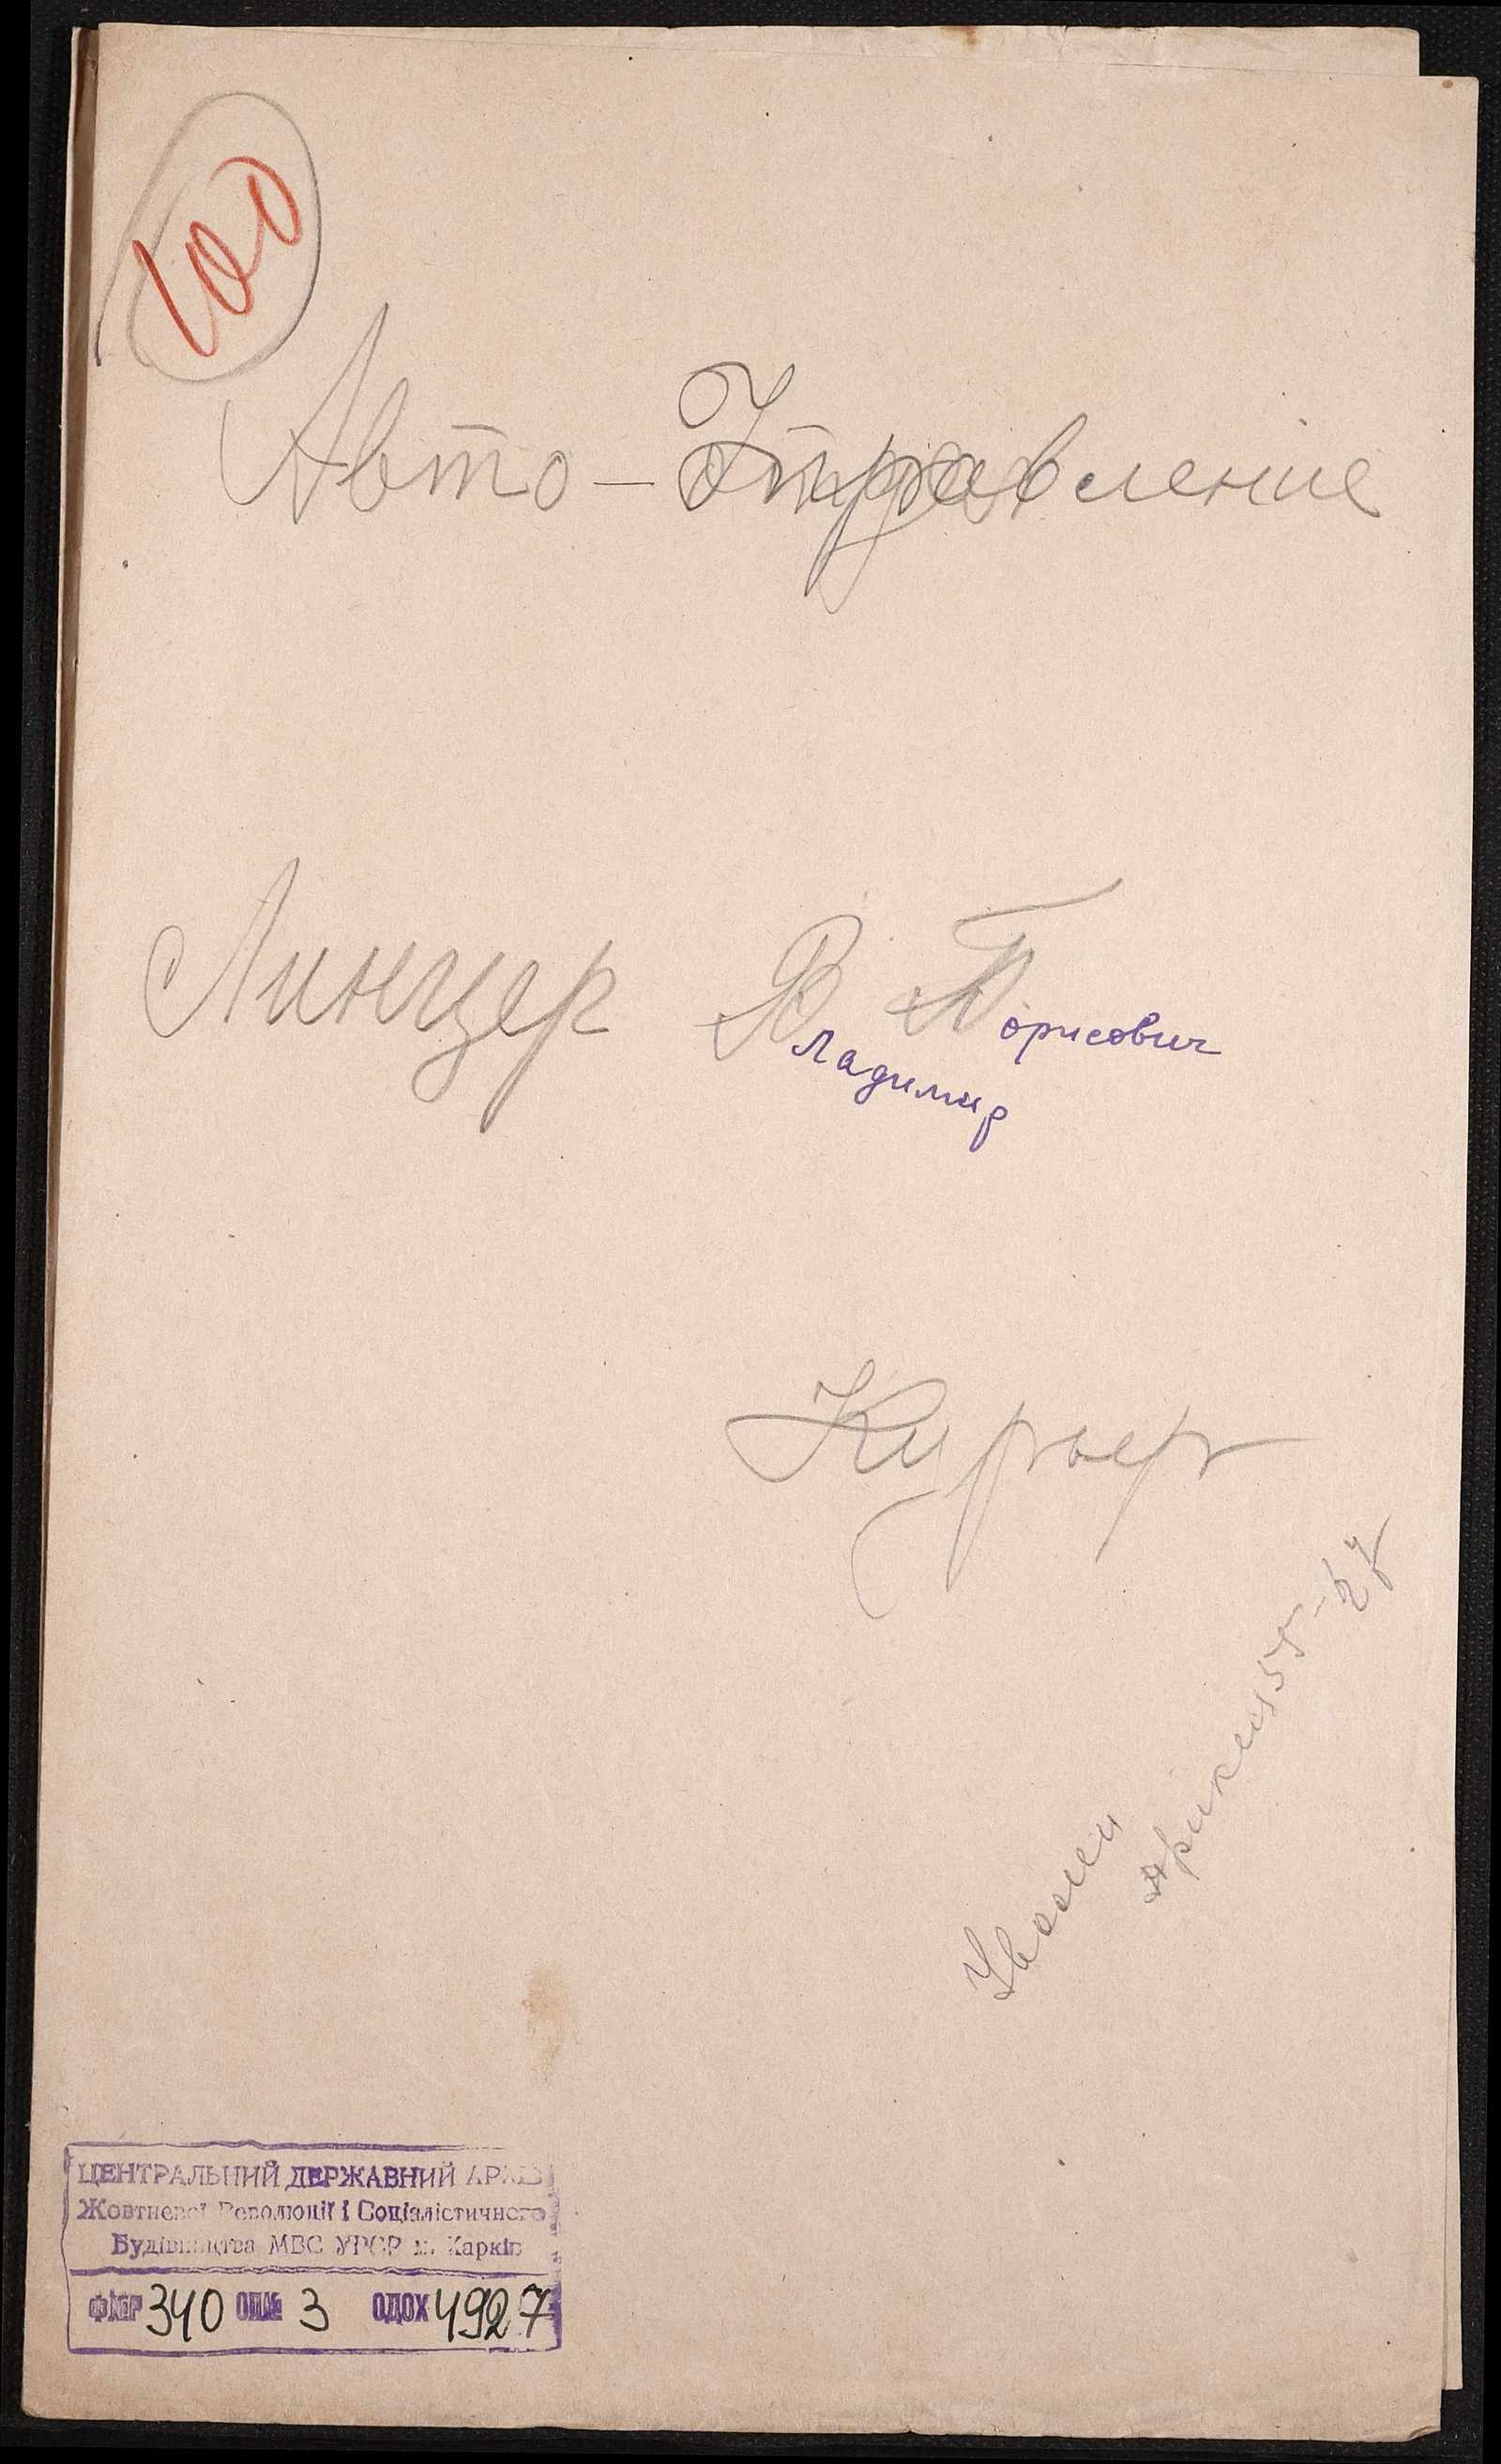 100
Авто-Управление
Линцер Владимир Борисович
Курьер
Уволен
приказ 55-27
ЦЕНТРАЛЬНИЙ ДЕРЖАВНИЙ АРХІВ
Жовтневої Революції і Соціалістичного
Будівництва МВС УРСР м. Харків
340 3 ОДОХ 4927